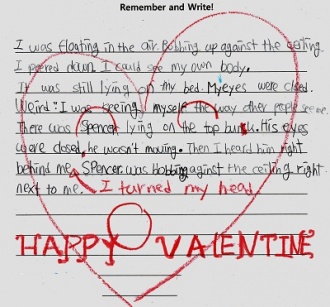 Remember and Write!
I was floating in the air. Bobbing up against the ceiling.
I peered down. I could see my own body.
It was still lying on my bed. My eyes were closed.
Weird! I was seeing myself the way other people see me.
There was Spencer lying on the top bunk. His eyes
were closed, he wasn't moving. Then I heard him right
behind me. Spencer was bobbing against the ceiling right
next to me. I turned my head.
HAPPY VALENTINE